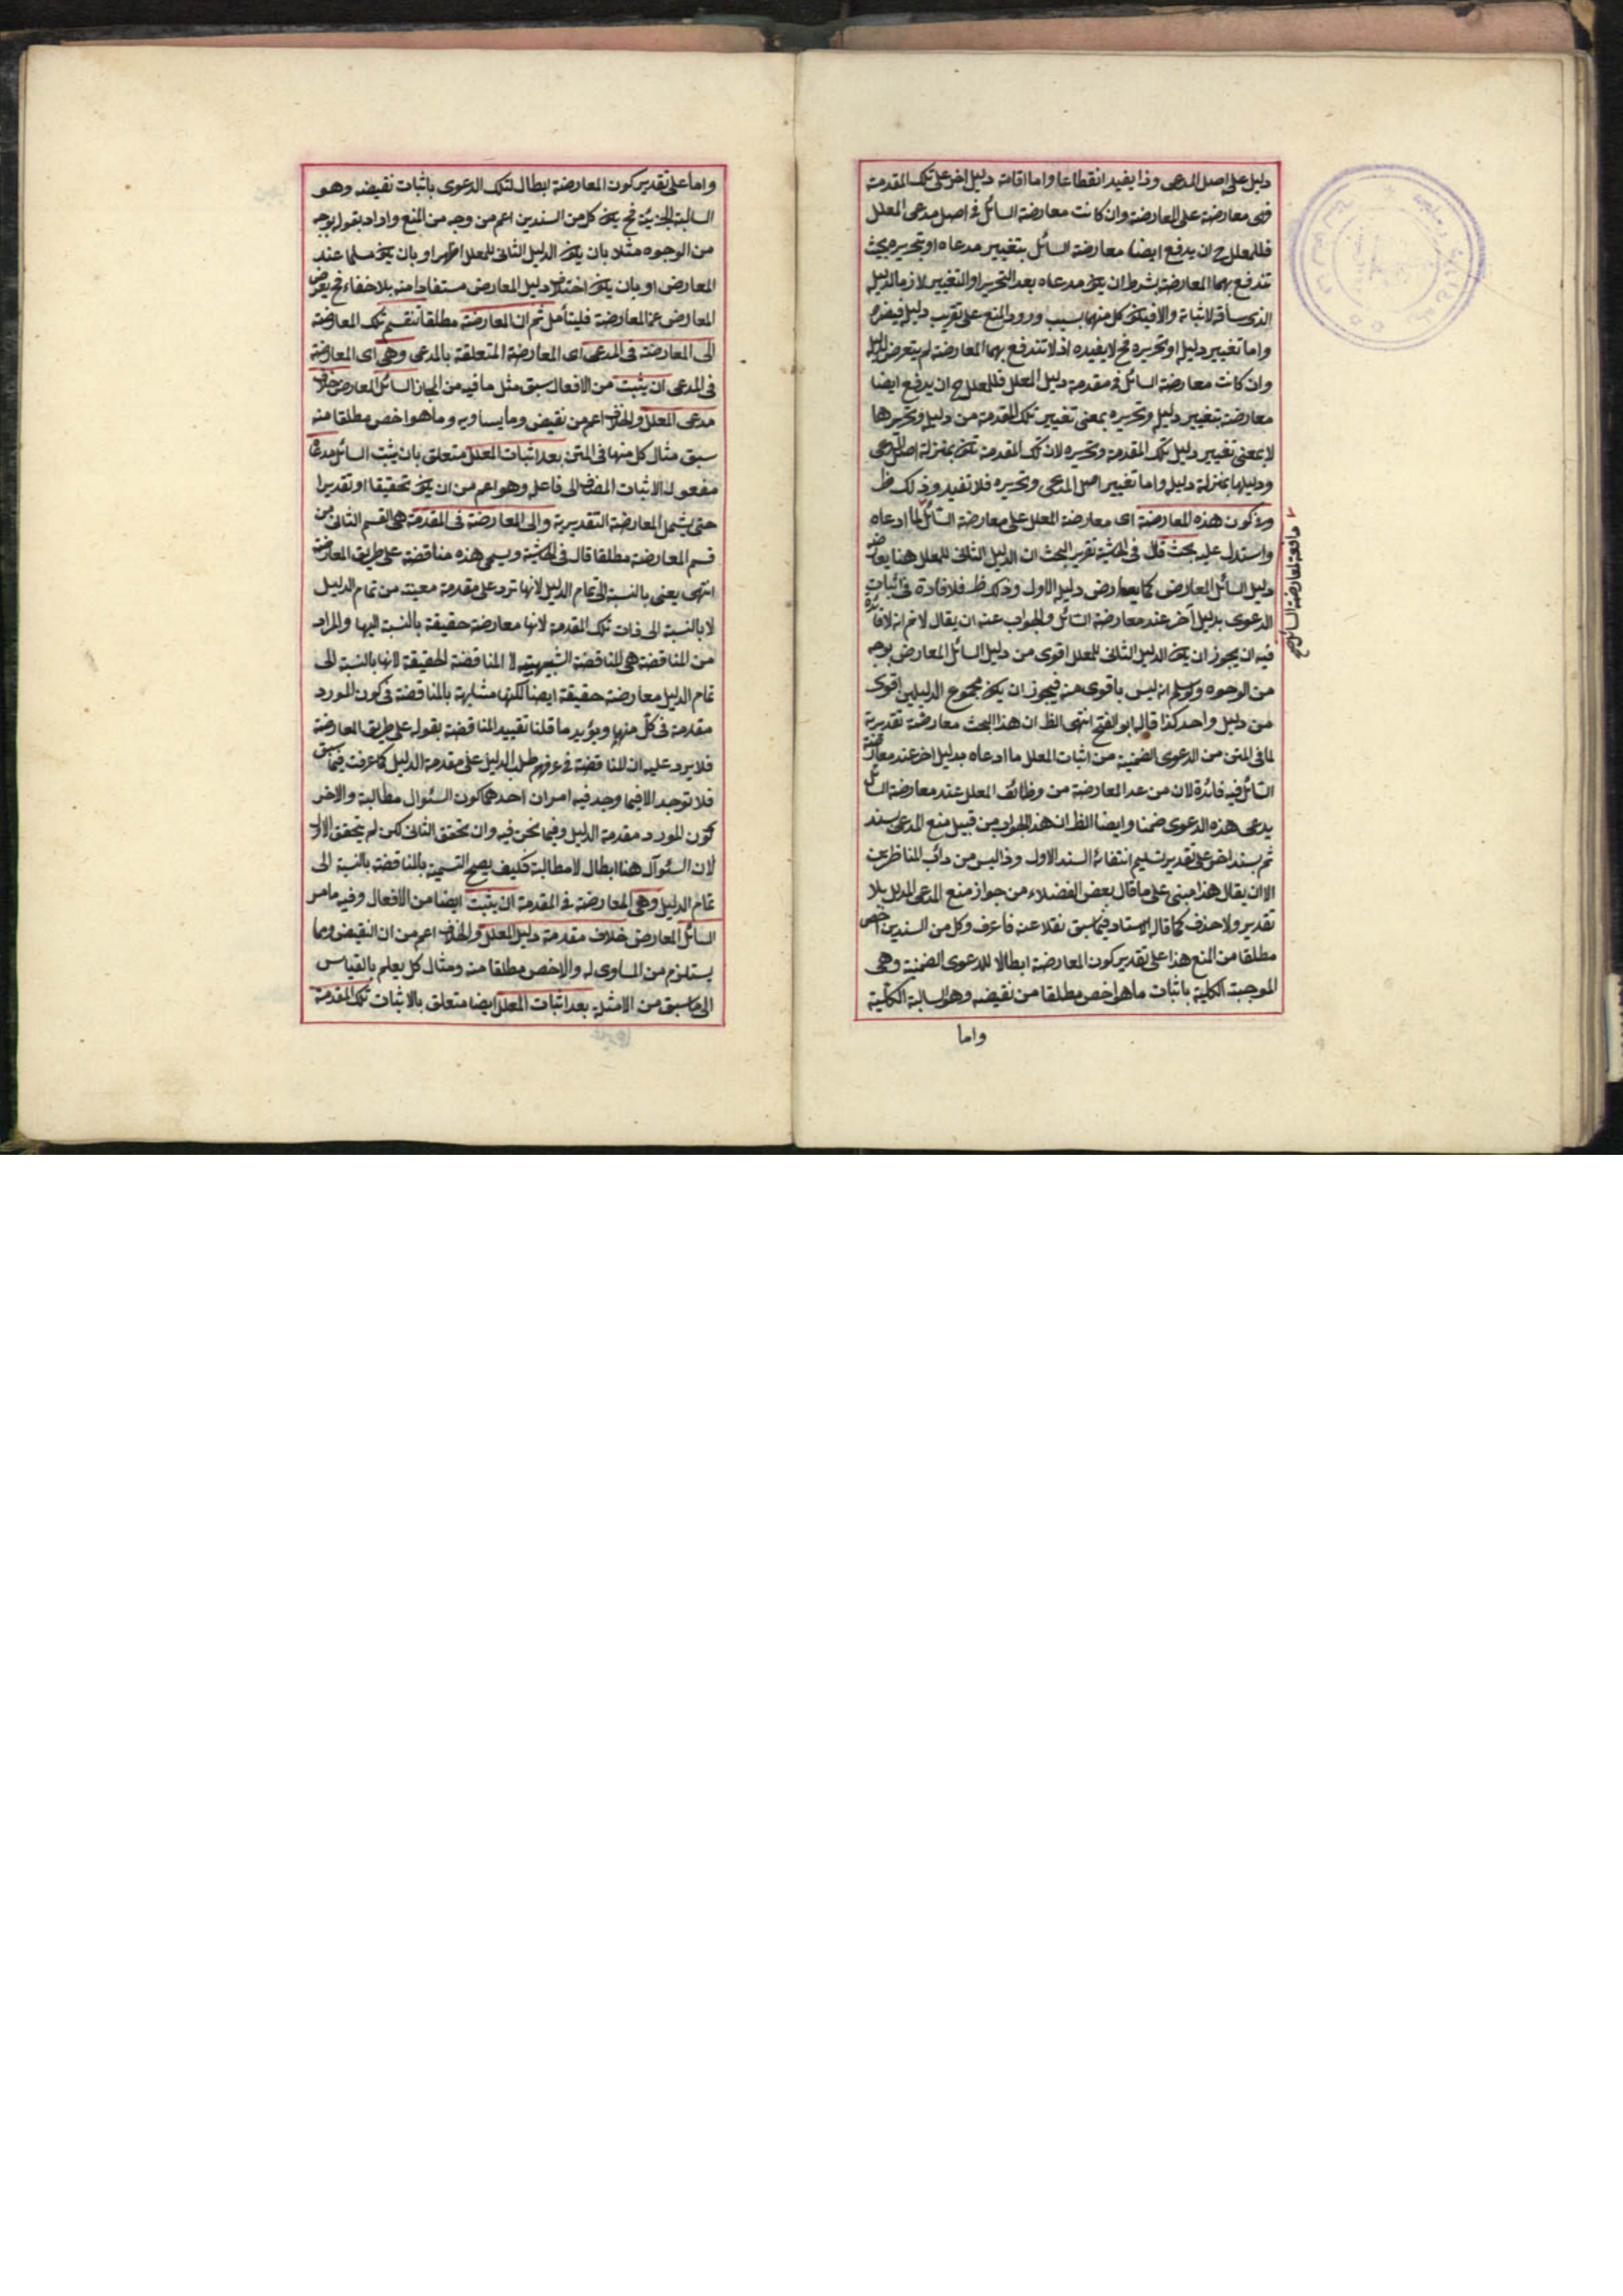 دليل على اصل المدعى وذا يفيد انقطاعا واما اقامة دليل اخر على تلك المقدمة
فهى معارضة على المعارضة وان كانت معارضة السائل فى اصل مدعى المعلل
فللمعلل ح ان يدفع ايضا معارضة السائل بتغيير مدعاه او بتحريره بحيث
تندفع بهما المعارضة بشرط ان يكون مدعاه بعد التحرير او التغيير لازم الدليل
الذى ساقه لاثباته والا فيكون كل منهما بسبب ورود المنع على تقريب دليله فيضره
واما تغيير دليله او تحريره فح لا يفيده اذ لا تندفع بهما المعارضة لم يتعرض لدليله
وان كانت معارضة السائل فى مقدمة دليل المعلل فللمعلل ح ان يدفع ايضا
معارضة بتغيير دليله وتحريره بمعنى تغيير تلك المقدمة من دليله وتحريرها
لا بمعنى تغيير دليل تلك المقدمة وتحريره لان تلك المقدمة تكون بمنزلة اصل المدعى
ودليلها بمنزلة دليله واما تغيير اصل المدعى وتحريره فلا تفيد وذلك ظ
وفى كون هذه المعارضة اى معارضة المعلل على معارضة السائل لما ادعاه
واستدل عليه بحث قال فى الحاشية تقرير البحث ان الدليل الثانى للمعلل هنا يعارضه
دليل السائل المعارض كما يعارض دليله الاول وذلك ظ فلا فادة فى اثبات
الدعوى بدليل آخر عند معارضة السائل والجواب عنه ان يقال لا نم انه لا فائدة
فيه ان يجوز ان يكون الدليل الثانى للمعلل اقوى من دليل السائل المعارض بوجه
من الوجوه ولو سلم انه ليس باقوى منه فيجوز ان يكون مجموع الدليلين اقوى
من دليل واحد كذا قاله ابو الفتح انتهى الظ ان هذا البحث معارضة تقديرية
لما فى المتن من الدعوى الضمنية من اثبات المعلل ما ادعاه بدليل اخر عند معارضة
السائل فيه فائدة لان من عد المعارضة من وظائف المعلل عند معارضة السائل
يدعى هذه الدعوى ضمنا وايضا الظ ان هذا الجواب من قبيل منع المدعى بسند
ثم بسند اخر على تقدير تسليم انتفاء السند الاول وذا ليس من دأب المناظرين
الا ان يقال هذا مبنى على ما قال بعض الفضلاء من جواز منع المدعى المدلل بلا
تقدير ولا حذف كما قال الاستاد فيما سبق نقلا عنه فاعرف وكل من السندين اخص
مطلقا من المنع هذا على تقدير كون المعارضة ابطالا للدعوى الضمنية وهى
الموجبة الكلية باثبات ما هو اخص مطلقا من نقيضه وهو السالبة الكلية
واما
لمعارضة السائل
واما على تقدير كون المعارضة ابطال لتلك الدعوى باثبات نقيضه وهو
السالبة الجزئية فح يكون كل من السندين اعم من وجه من المنع واراد بقوله بوجه
من الوجوه مثلا بان يكون الدليل الثانى للمعلل اظهر او بان يكون مسلما عند
المعارض او بان يكون اختلال دليل المعارض مستفادا منه بلا خفاء فح يعرض
المعارض عن المعارضة فليتأمل ثم ان المعارضة مطلقا تنقسم تلك المعارضة
الى المعارضة فى المدعى اى المعارضة المتعلقة بالمدعى وهى اى المعارضة
فى المدعى ان يثبت من الافعال سبق مثل ما فيه من المجاز السائل المعارض خلاف
مدعى المعلل والخلاف اعم من نقيض وما يساويه وما هو اخص مطلقا منه
سبق مثال كل منها فى المتن بعد اثبات المعلل متعلق بان يثبت السائل مدعاه
مفعول الاثبات المضاف الى فاعله وهو اعم من ان يكون تحقيقا او تقديرا
حتى يشمل المعارضة التقديرية والى المعارضة فى المقدمة هى القسم الثانى من
قسم المعارضة مطلقا قال فى الحاشية ويسمى هذه مناقضة على طريق المعارضة
انتهى يعنى بالنسبة الى تمام الدليل لانها ترد على مقدمة معينة من تمام الدليل
لا بالنسبة الى ذات تلك المقدمة لانها معارضة حقيقة بالنسبة اليها والمراد
من المناقضة هى المناقضة التشبيهية لا المناقضة الحقيقة لانها بالنسبة الى
تمام الدليل معارضة حقيقة ايضا لكنها مشابهة بالمناقضة فى كون المورد
مقدمة فى كل منهما ويؤيد ما قلنا تقييد المناقضة بقوله على طريق المعارضة
فلا يرد عليه ان المناقضة فى عرفهم طلب الدليل على مقدمة الدليل كما عرفت فيما سبق
فلا توجد الا فيما وجد فيه امران احدهما كون السئوال مطالبة والاخر
كون المورد مقدمة الدليل وفيما نحن فيه وان تحقق الثانى لكن لم يتحقق الاول
لان السئوال هنا ابطال لا مطالبة فكيف يصح التسمية بالمناقضة بالنسبة الى
تمام الدليل وهى المعارضة فى المقدمة ان يثبت ايضا من الافعال وفيه ما مر
السائل المعارض خلاف مقدمة دليل المعلل والخلاف اعم من ان النقيض وما
يستلزم من المساوى له والاخص مطلقا منه ومثال كل يعلم بالقياس
الى ما سبق من الامثلة بعد اثبات المعلل ايضا متعلق بالاثبات تلك المقدمة